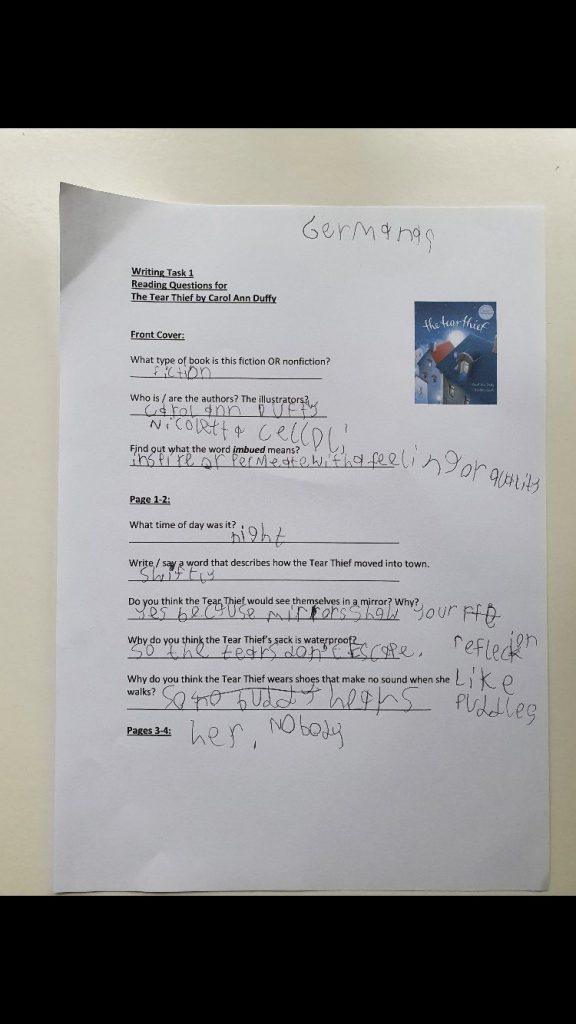 Germanas
Writing Task 1
Reading Questions for
The Tear Thief by Carol Ann Duffy
the tear thief
Front Cover:
What type of book is this fiction OR nonfiction?
fiction
Who is / are the authors? The illustrators?
Carol ann Duffy
Nicoletta Ceccoli
Find out what the word imbued means?
inspire or permeate with a feeling or quality
Page 1-2:
What time of day was it?
night
Write / say a word that describes how the Tear Thief moved into town.
Swiftly
Do you think the Tear Thief would see themselves in a mirror? Why?
yes because mirrors show your
refleckion
Like
Puddles
Why do you think the Tear Thief's sack is waterproof?
So the tears don't Escape.
Why do you think the Tear Thief wears shoes that make no sound when she
walks?
So no buddy hears
her. Nobody
Pages 3-4: